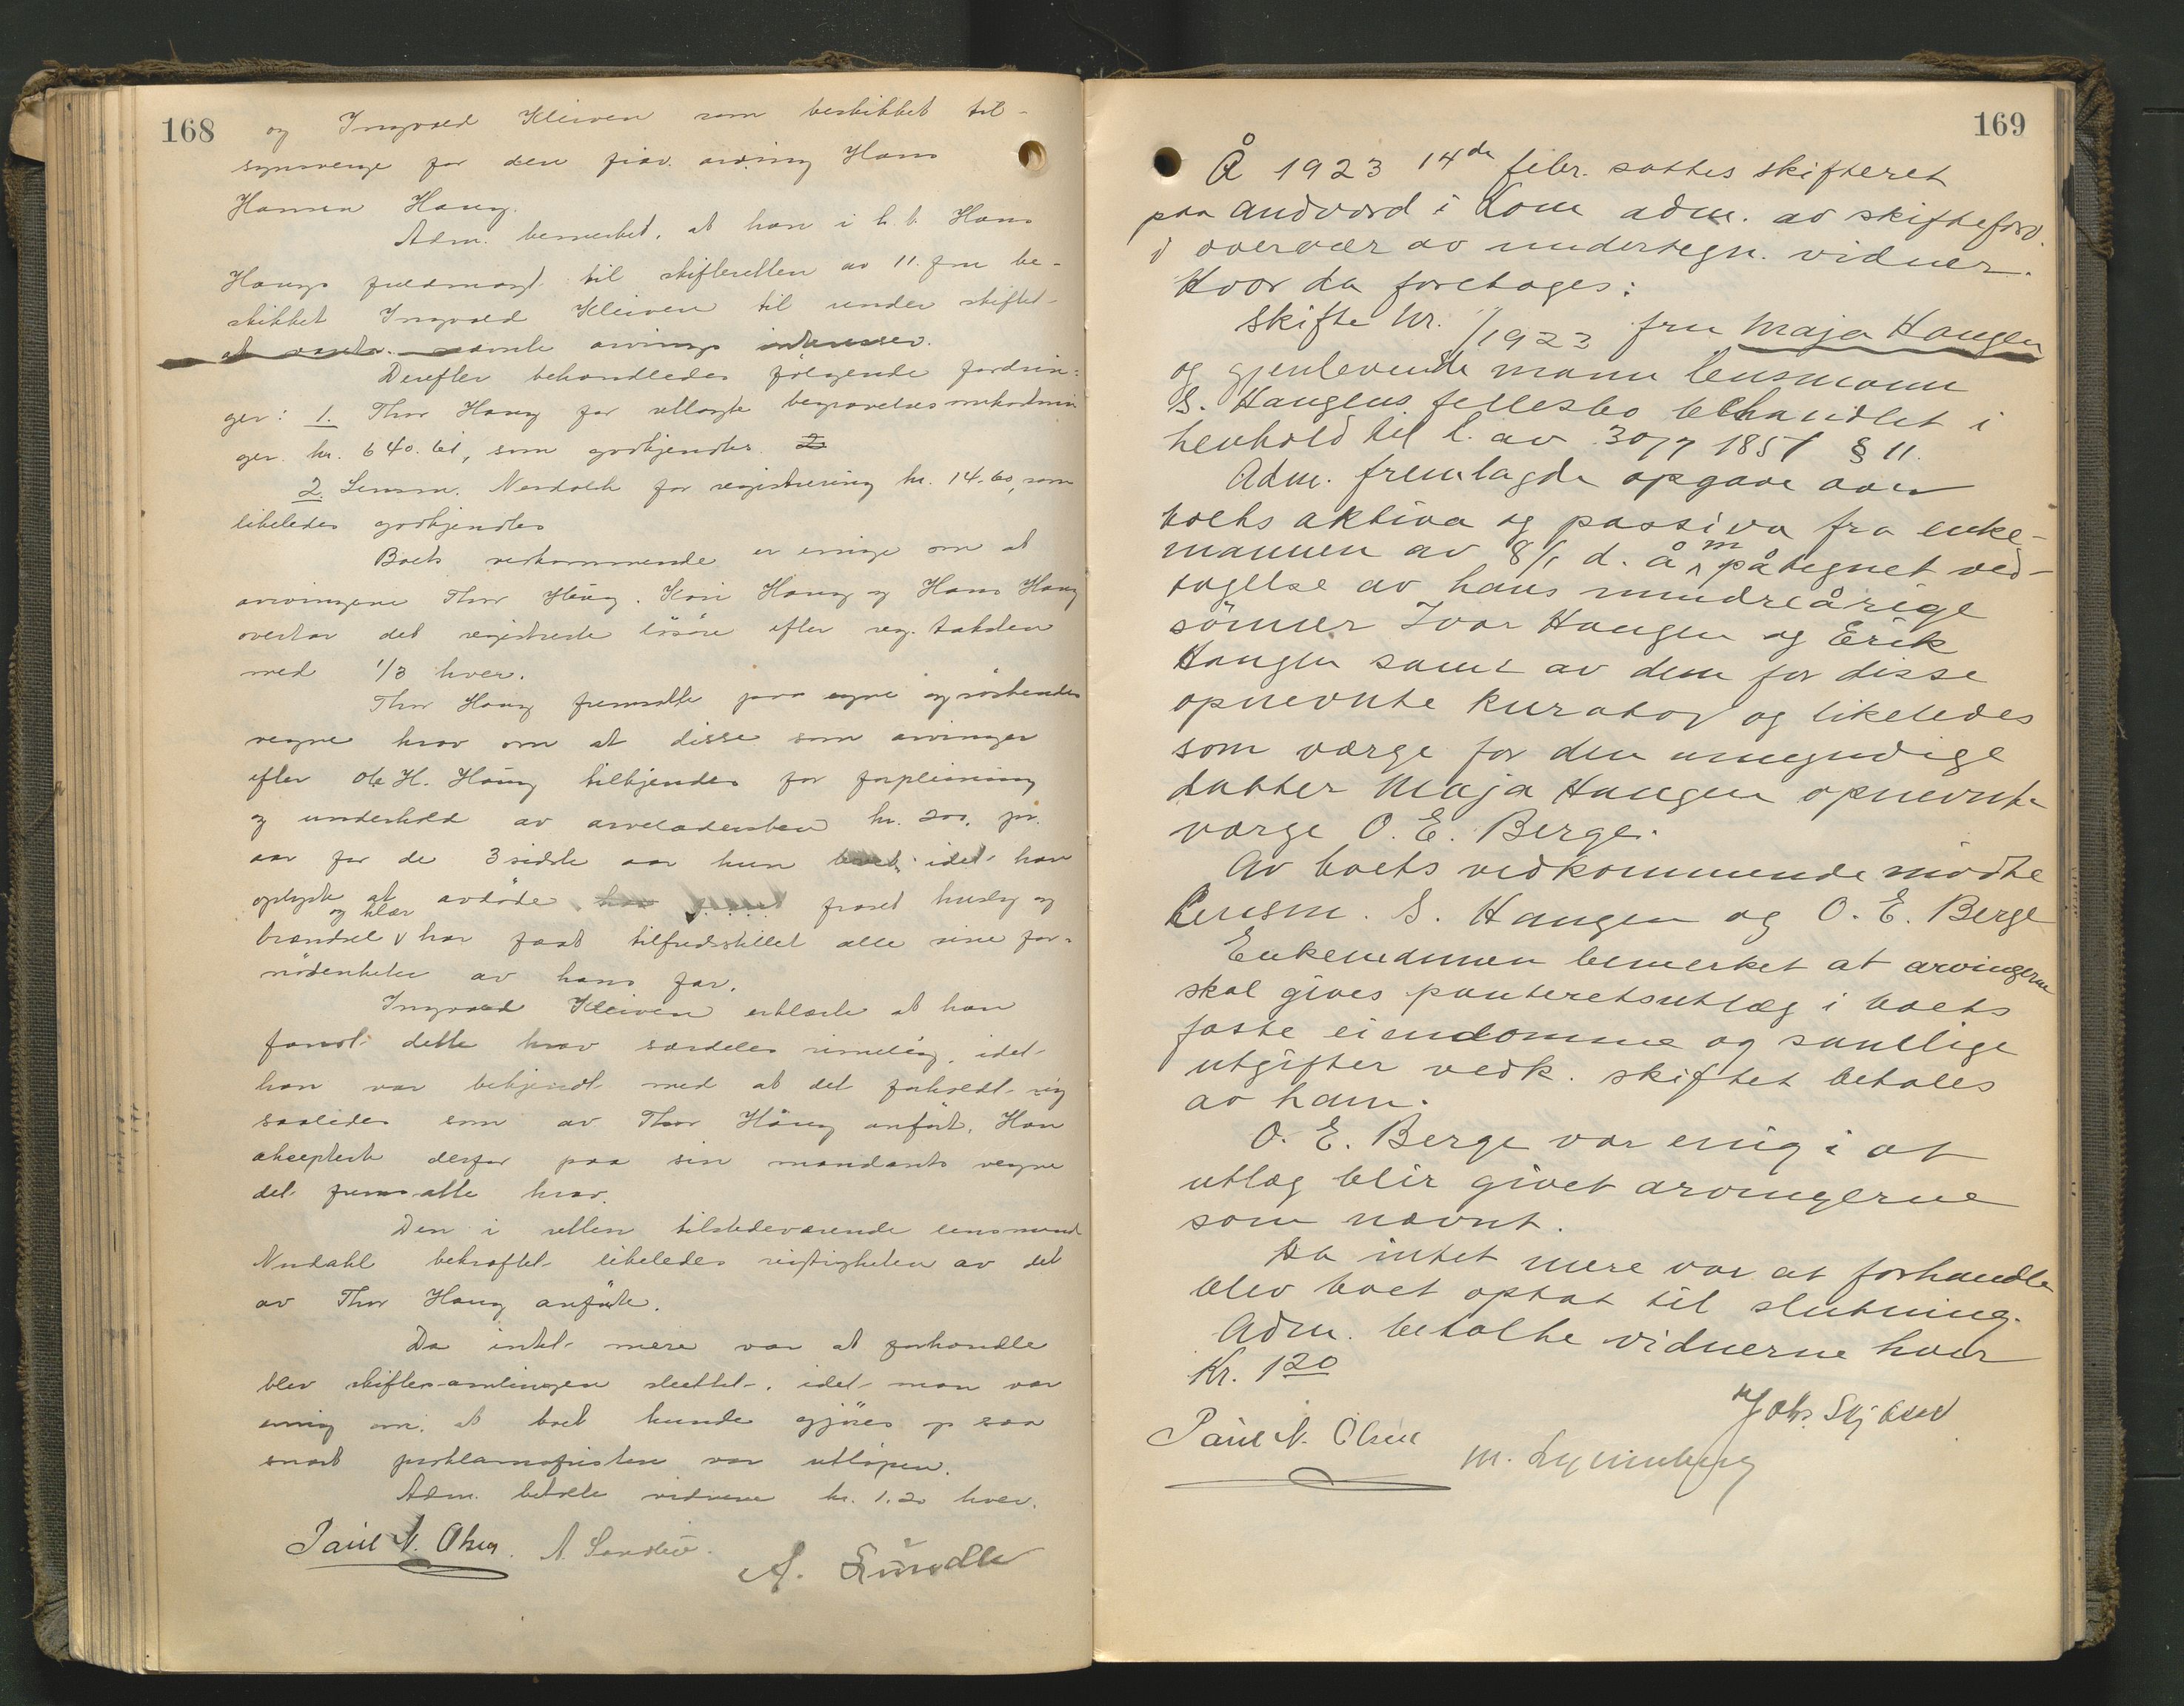 168
og Ingvald Kleiven som beskikket til-
synsverge for den frav. arving Hans
Hansen Haug.
Adm. bemerket, at han i h. t. Hans
Haugs fuldmagt til skifteretten av 11. jan be-
skikket Ingvald Kleiven til under skiftet
at vareta samle arvings interesser.
Derefter behandledes følgende fordrin-
ger: 1. Thor Haug for utlagte begravelsesomkostnin
ger kr. 640.61, som godkjendtes. 2
2. Lensm. Nordahl for registrering kr. 14.60, som
likeledes godkjendtes
Boets vedkommende er enige om at
arvingene Thor Haug. Kari Haug og Hans Haug
overtar det registrerte løsøre efter reg. taksten
med 1/3 hver.
Thor Haug fremsatte paa egne og søskendes
vegne krav om at disse som arvinger
efter Ole H. Haug tilkjendes for forpleining
og underhold av arveladersken kr. 200. pr.
aar for de 3 sidste aar hun levet, idet han
oplyste at avdøde har frit huslig og
brændsel og klær har faat tilfredsstillet alle sine for-
nødenheter av hans far.
Ingvald Kleiven erklærte at han
fandt dette krav særdeles rimelig, idet
han var bekjendt med at det forholdt sig
saaledes som av Thor Haug anført. Han
aksepterte derfor paa sin mandants vegne
det fremsatte krav.
Den i retten tilstedeværende lensmand
Nordahl bekræftet likeledes rigtigheten av det
av Thor Haug anførte.
Da intet mere var at forhandle
blev skiftesamlingen sluttet, idet man var
enig om, at boet kunde gjøres op saa
snart proklamafristen var utløpen.
Adm. betalte vidnene kr. 1.20 hver.
Paul N. Olsen. A.
169
År 1923 14de febr. sattes skifteret
paa Andvord i Lom adm. av skifteforv.
i overvær av undertegn. vidner.
Hvor da foretoges:
Skifte nr. 1/1923 fru Maja Haugen
og gjenlevende mann lensmann
S. Haugens fellesbo behandlet i
henhold til l. av 30/7 1851 § 11.
Adm. fremlagde opgave over
boets aktiva og passiva fra enke-
mannen av 8/1 d. å m påtegnet ved-
tagelse av hans mindreårige
sönner Ivar Haugen og Erik
Haugen samt av den for disse
opnevnte kurator og likeledes
som værge for den umyndige
datter Maja Haugen opnevnte
værge O. E. Berge.
Av boets vedkommende mödte
Lensm. S. Haugen og O. E. Berge
Enkemannen bemerket at arvingerne
skal gives panteretsutlæg i boets
faste eiendomme og samtlige
utgifter vedk. skiftet betales
av ham.
O. E. Berge var enig i at
utlæg blir givet arvingerne
som nævnt.
Da intet mere var at forhandle
blev boet optat til slutning.
Adm. betalte vidnerne hver
Kr. 1 20
Paul N. Olsen